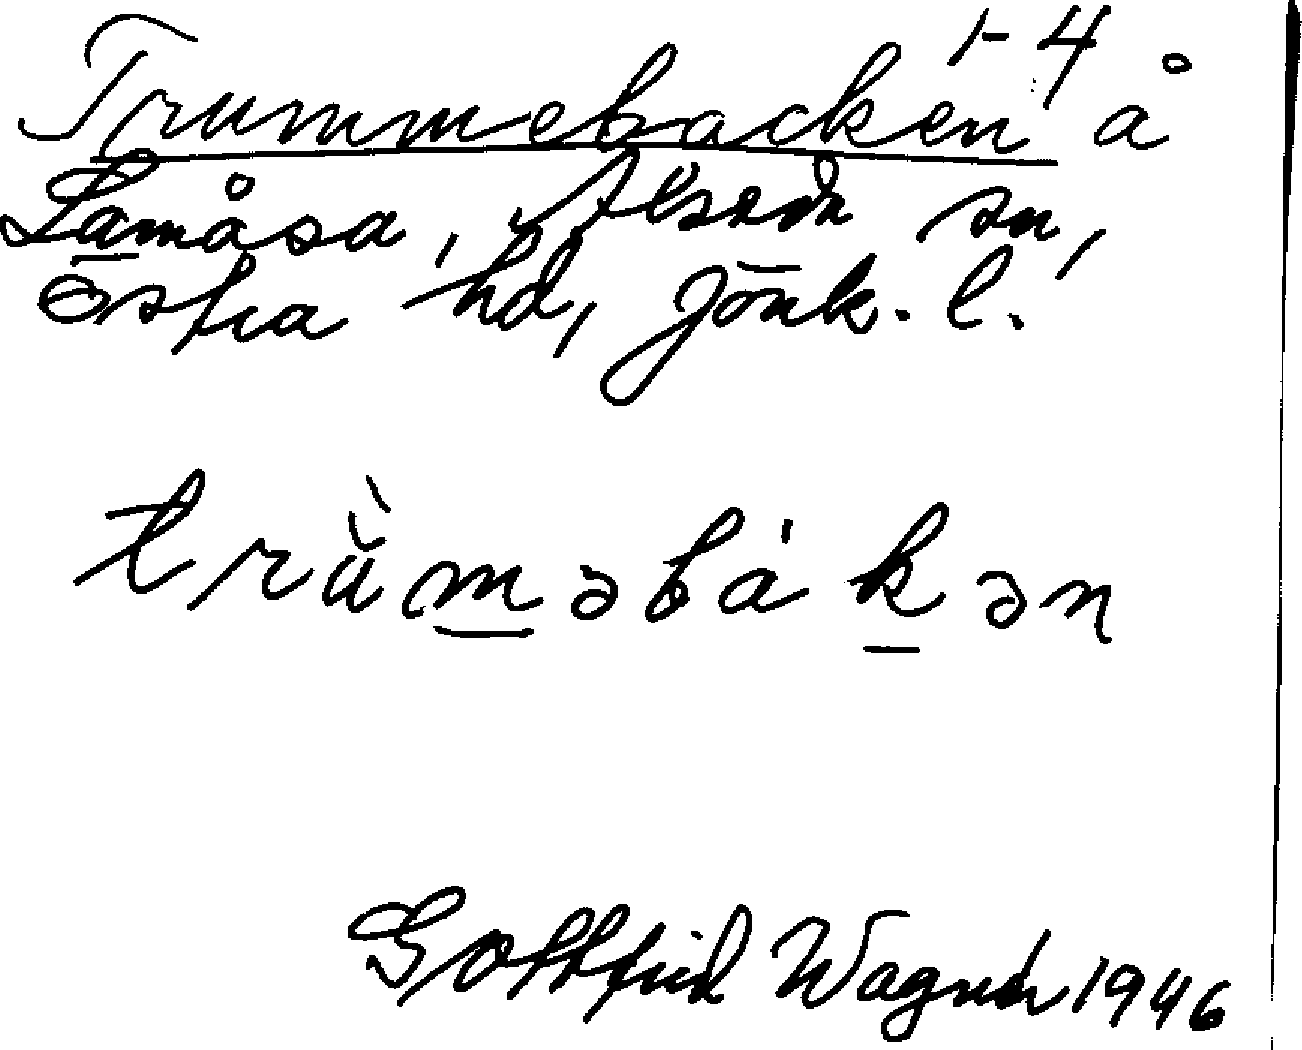 1-4
Trummebacken å
Lamåsa, Alseda sn,
Östra hd, Jönk. l.
trùməbákən
Gottfrid Wagnér 1946